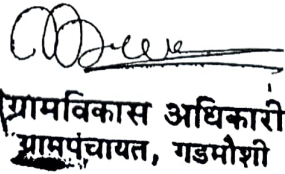 ग्रामविकास अधिकारी
ग्रामपंचायत, गडमौशी